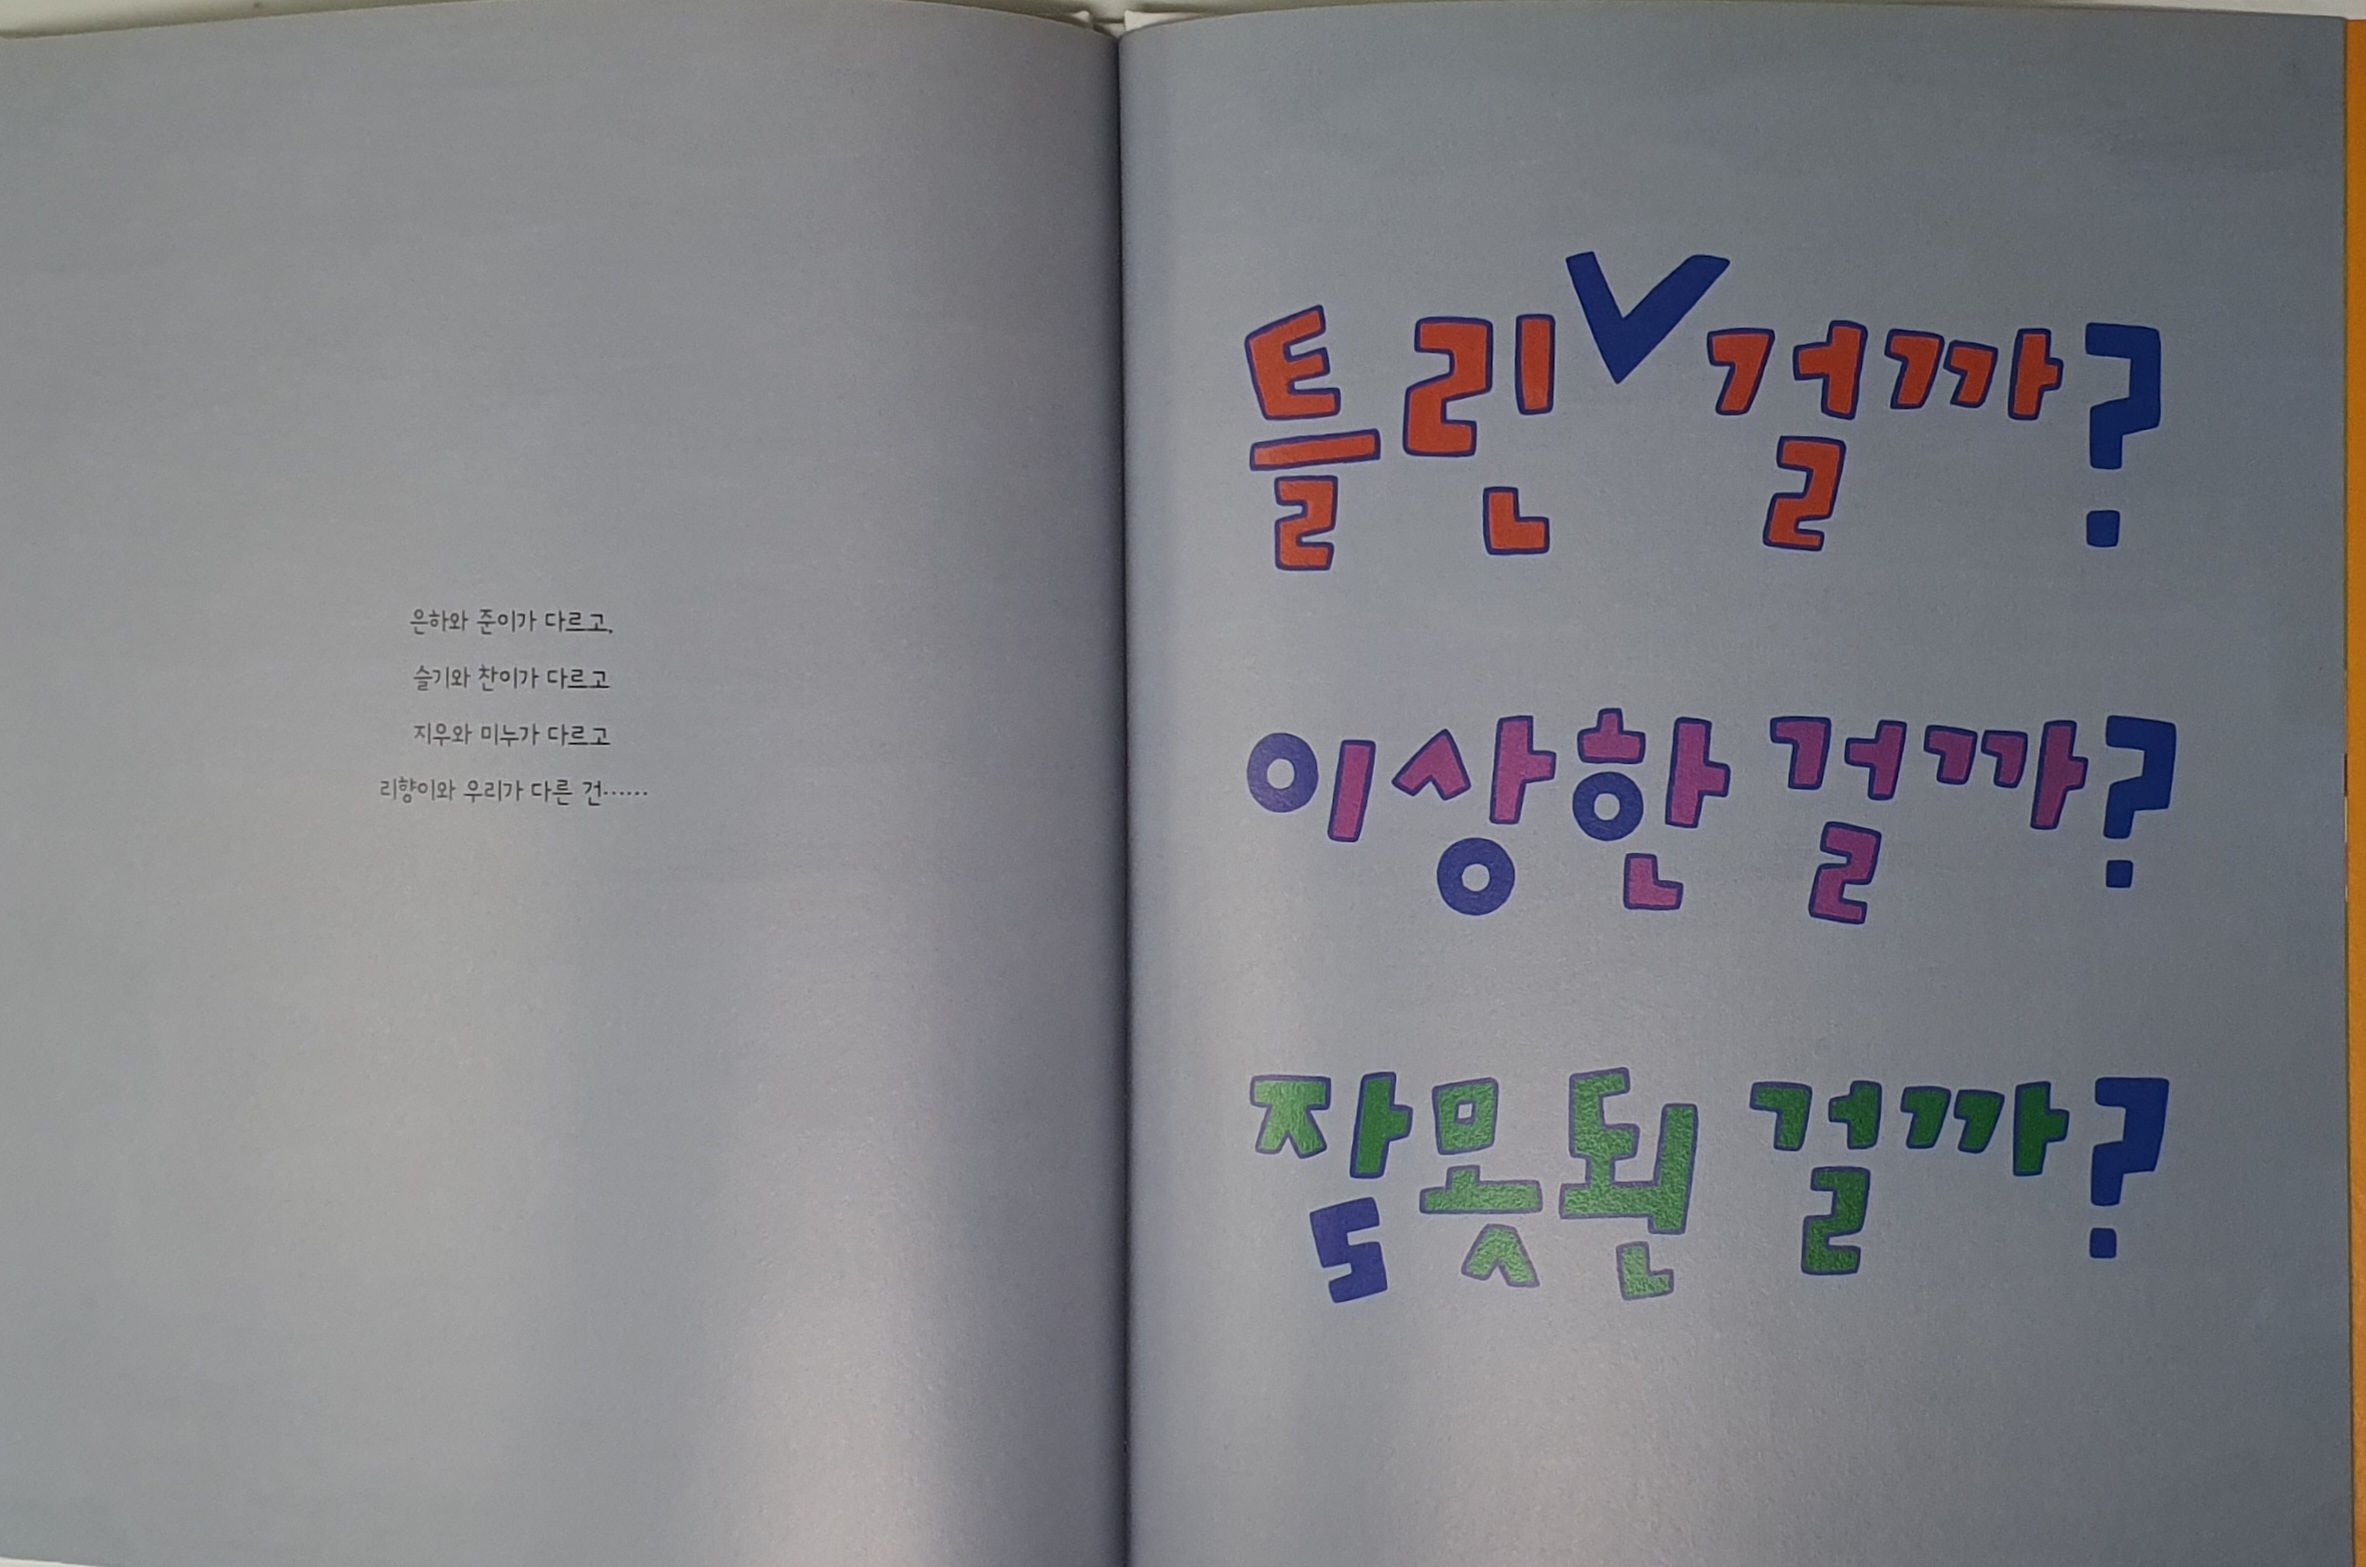 은하와 준이가 다르고,
슬기와 찬이가 다르고
지우와 미누가 다르고
리향이와 우리가 다른 건……
틀린✓걸까?
이상한 걸까?
잘못된 걸까?